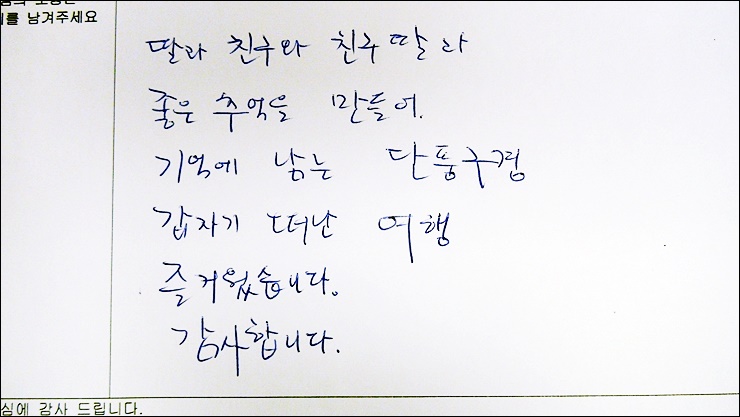 를 남겨주세요
딸과 친구와 친구 딸과
좋은 추억을 만들어.
기억에 남는 단풍구경
갑자기 떠난 여행
즐거웠습니다.
감사합니다.
심에 감사 드립니다.